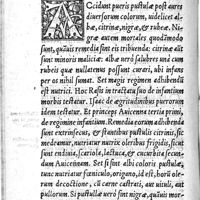 ACcidunt pueris pustulæ post aures
diuersorum colorum, uidelicet al-
bæ, citrinæ, nigræ, & rubeæ. Nigræ
autem mortales quodāmodo
sunt, quāuis remedia sint eis tribuenda: citrinæ aūt
sunt minoris maliciæ: albæ uerò salubres und cum
rubeis quæ nullatenus possunt curari, ubi infans
per os nihil sumat. Set magis regimen adhibendū
est nutrici. Hoc Rasis in tractatu suo de infantium
morbis testatur. Isaac de ægritudinibus puerorum
idem testatur. Et princeps Auicenna tertia primi,
de regimine infantium. Remedia eorum adhibenda
sunt extrinsecus, & stantibus pustulis citrinis, sic
medeamur, nutriatur nutrix oleribus frigidis, sicut
sunt endiuia, scariola, lactuca, & cucurbita secun-
dum Auicennam. Set si sint albi coloris pustulæ,
tunc nutriatur fœniculo, origano, id est, horū ole-
rum decoctione, cū carne castrati, aut uituli, aut
pullorum. Si pustulæ uerò sint nigræ, quāuis mor-